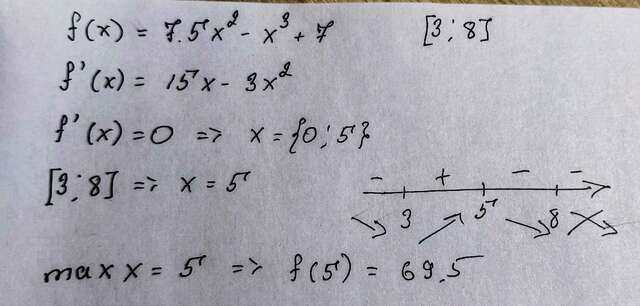 f(x) = 7.5x² - x³ + 7 [3; 8]
f'(x) = 15x - 3x²
f'(x) = 0 => x = {0; 5}
[3; 8] => x = 5
- + - -
3 5 8
max x = 5 => f(5) = 69.5